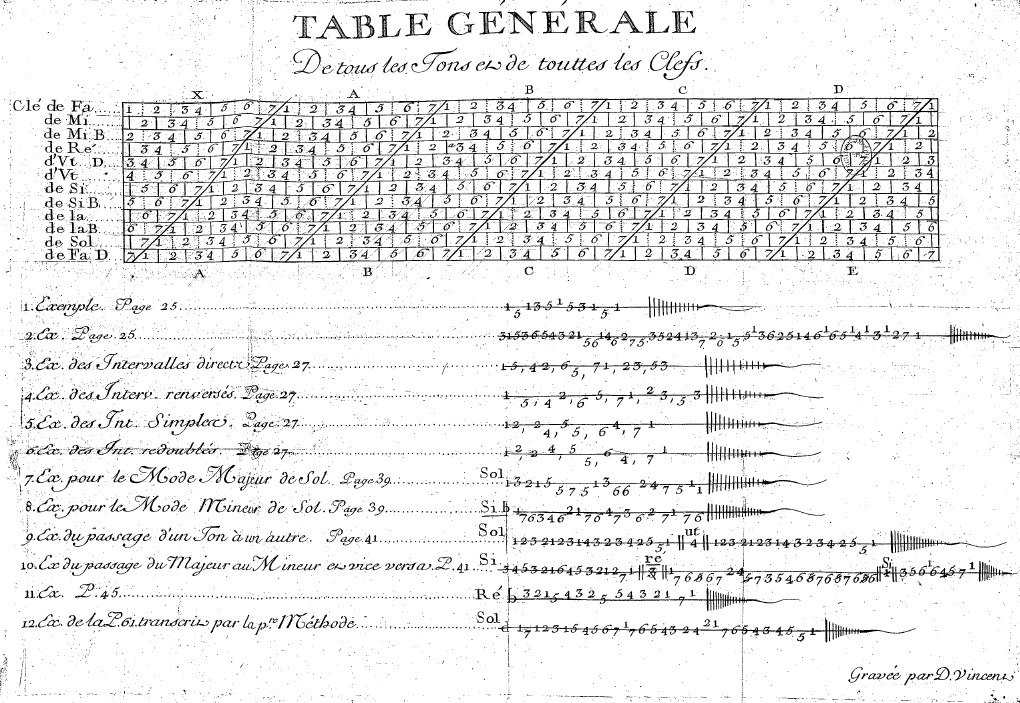 TABLE GÉNÉRALE
De tous les Tons et de touttes les Clefs.
X A B C D
Clé de Fa 1 2 3 4 5 6 7 1 2 3 4 5 6 7 1 2 3 4 5 6 7 1 2 3 4 5 6 7 1 2 3 4 5 6 7 1
de Mi 2 3 4 5 6 7 1 2 3 4 5 6 7 1 2 3 4 5 6 7 1 2 3 4 5 6 7 1 2 3 4 5 6 7 1
de Mi B. 2 3 4 5 6 7 1 2 3 4 5 6 7 1 2 3 4 5 6 7 1 2 3 4 5 6 7 1 2 3 4 5 6 7 1 2
de Re 3 4 5 6 7 1 2 3 4 5 6 7 1 2 3 4 5 6 7 1 2 3 4 5 6 7 1 2 3 4 5 6 7 1 2
d'Vt D. 3 4 5 6 7 1 2 3 4 5 6 7 1 2 3 4 5 6 7 1 2 3 4 5 6 7 1 2 3 4 5 6 7 1 2 3
d'Vt 4 5 6 7 1 2 3 4 5 6 7 1 2 3 4 5 6 7 1 2 3 4 5 6 7 1 2 3 4 5 6 7 1 2 3 4
de Si 5 6 7 1 2 3 4 5 6 7 1 2 3 4 5 6 7 1 2 3 4 5 6 7 1 2 3 4 5 6 7 1 2 3 4
de Si B. 5 6 7 1 2 3 4 5 6 7 1 2 3 4 5 6 7 1 2 3 4 5 6 7 1 2 3 4 5 6 7 1 2 3 4 5
de la 6 7 1 2 3 4 5 6 7 1 2 3 4 5 6 7 1 2 3 4 5 6 7 1 2 3 4 5 6 7 1 2 3 4 5
de la B. 6 7 1 2 3 4 5 6 7 1 2 3 4 5 6 7 1 2 3 4 5 6 7 1 2 3 4 5 6 7 1 2 3 4 5 6
de Sol 7 1 2 3 4 5 6 7 1 2 3 4 5 6 7 1 2 3 4 5 6 7 1 2 3 4 5 6 7 1 2 3 4 5 6
de Fa D. 7 1 2 3 4 5 6 7 1 2 3 4 5 6 7 1 2 3 4 5 6 7 1 2 3 4 5 6 7 1 2 3 4 5 6 7
A B C D E
1. Exemple. Page 25 1 5 1 3 5 1 5 3 1 5 1
2. Ex. Page 25
3. Ex. des Intervalles directz Page 27 1 5, 4 2, 6 5, 7 1, 2 3, 5 3
4. Ex. des Interv. renversés. Page 27 1 5, 4 2, 6 5, 7 1, 2 3, 5 3
5. Ex. des Int. Simples. Page 27 1 2, 2 4, 5 5, 6 4, 7 1
6. Ex. des Int. redoublés. Page 27 1 2, 2 4, 5 5, 6 4, 7 1
7. Ex. pour le Mode Majeur de Sol. Page 39 Sol 1 3 2 1 5 5 7 5 1 3 6 6 2 4 7 5 1 1
8. Ex. pour le Mode Mineur de Sol. Page 39 Si b
9. Ex. du passage d'un Ton à un autre. Page 41 Sol 1 2 3 2 1 2 3 1 4 3 2 3 4 2 5 5, 1 ut 4 1 2 3 2 1 2 3 1 4 3 2 3 4 2 5 5, 1
10. Ex du passage du Majeur au Mineur et vice versa. P. 41 Si re Si
11. Ex. P. 45 Ré b 3 2 1 5 4 5 4 3 2 5 5 4 3 2 1 7 1
12. Ex. de la P. 61. transcrit par la pre. Méthode Sol
Gravée par D. Vincent